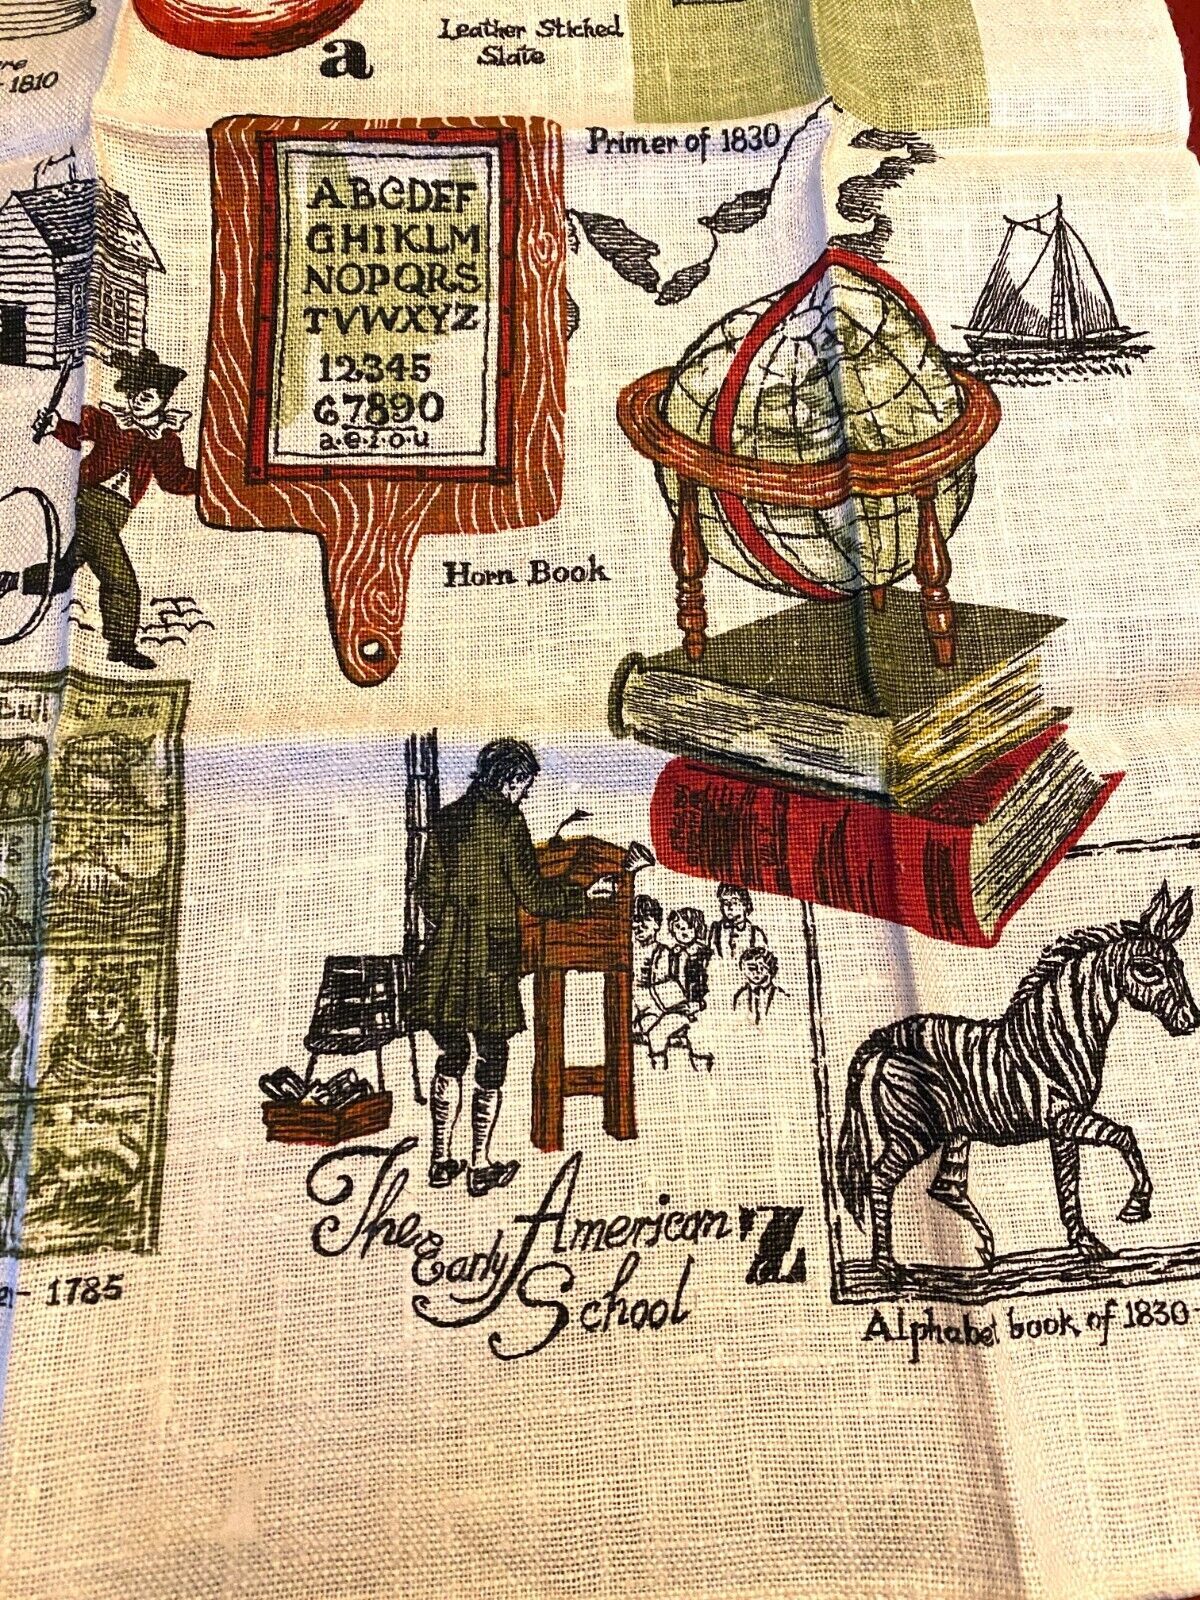 Leather Stiched
Slate
a
1810
Primer of 1830
ABCDEF
GHIKLM
NOPQRS
TVWXYZ
12345
67890
a·e·i·o·u
Horn Book
1785
The Early American
School
Z
Alphabet book of 1830